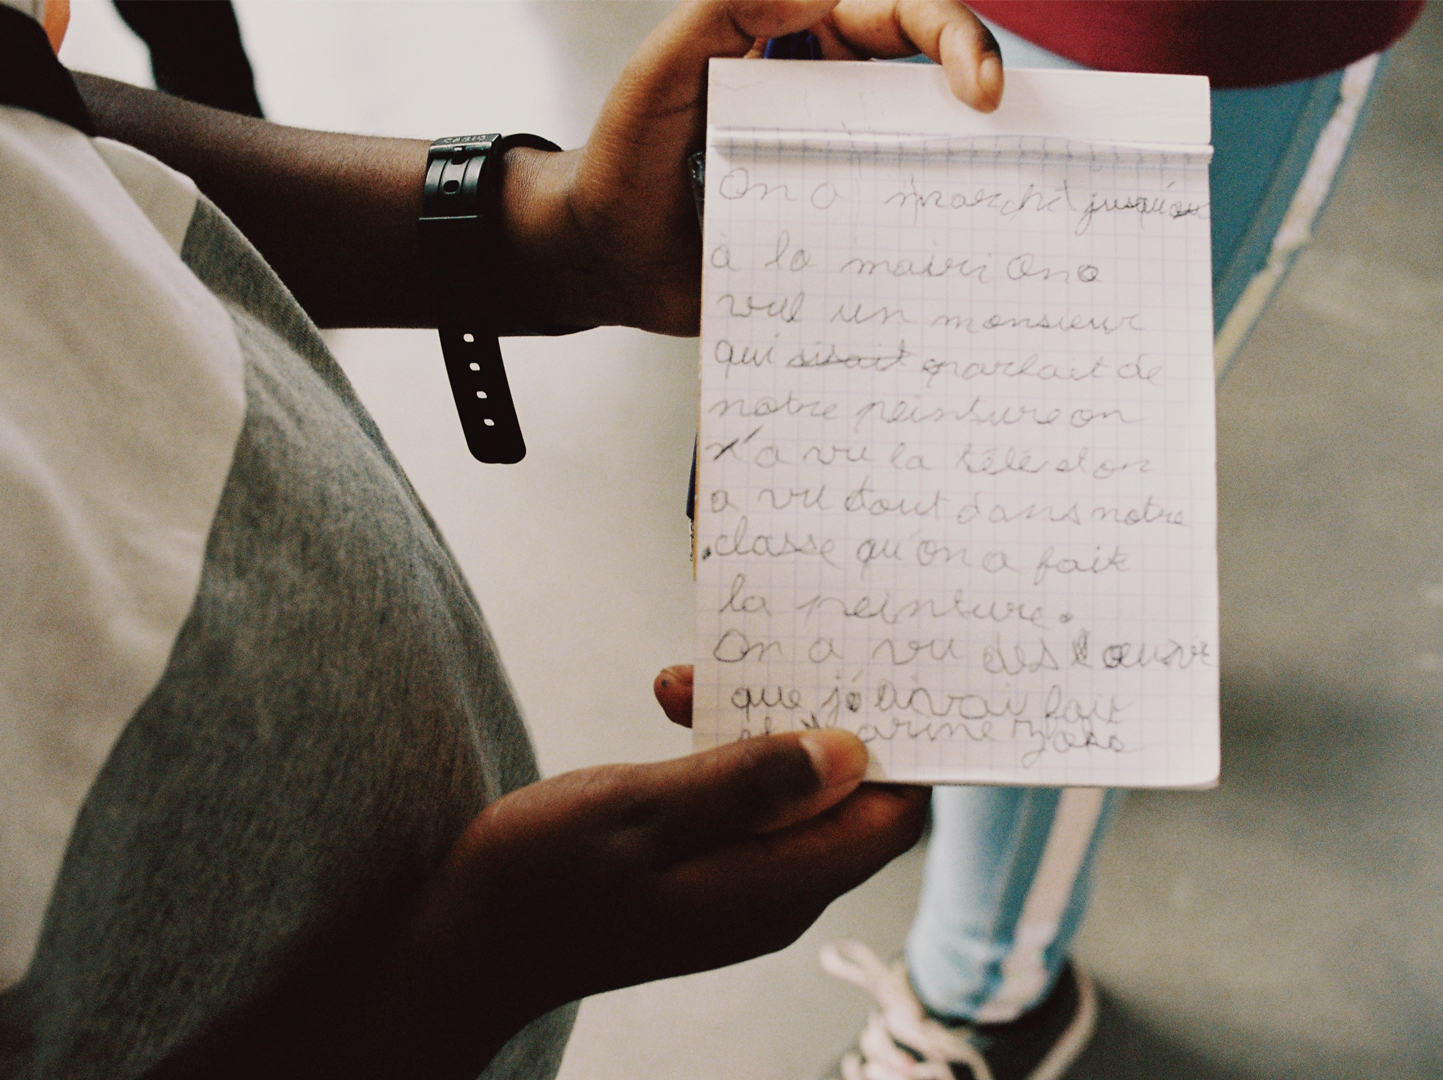 CASIO
On a marché jusqu'au
à la mairi On a
vue un monsieur
qui disait parlait de
notre peinture on
n'a vu la télé et on
a vu tout dans notre
classe qu'on a fait
la peinture.
On a vu des œuvre
que j'avai fait